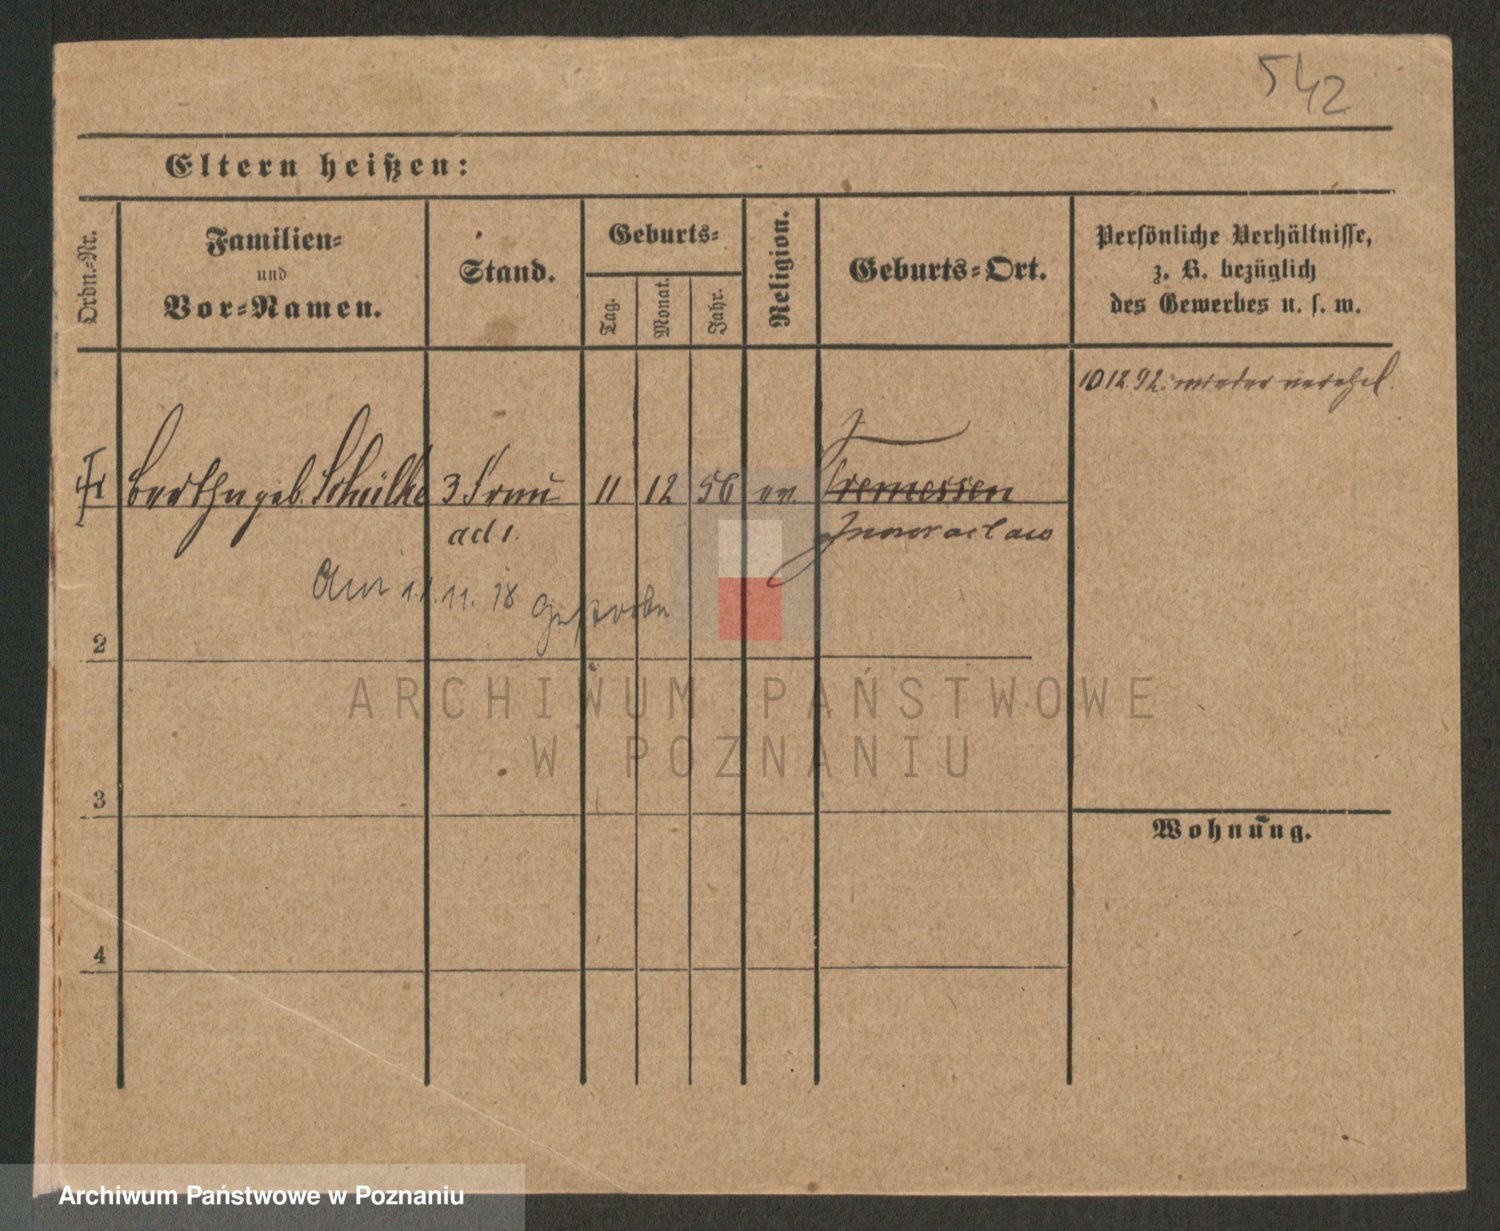 542
Eltern heißen:
Ordn.-Nr.
Familien-
und
Vor-Namen.
Stand.
Geburts-
Tag.
Monat.
Jahr.
Religion.
Geburts-Ort.
Persönliche Verhältnisse,
z. B. bezüglich
des Gewerbes u. s. w.
10 12 92. wieder verehel.
Bertha geb. Schülke 3 Frau 11 12 56 ev. Tremessen
ad 1. Inowraclaw
Am 11.11.18 gestorben
2
ARCHIWUM PAŃSTWOWE
W POZNANIU
3
Wohnung.
4
Archiwum Państwowe w Poznaniu